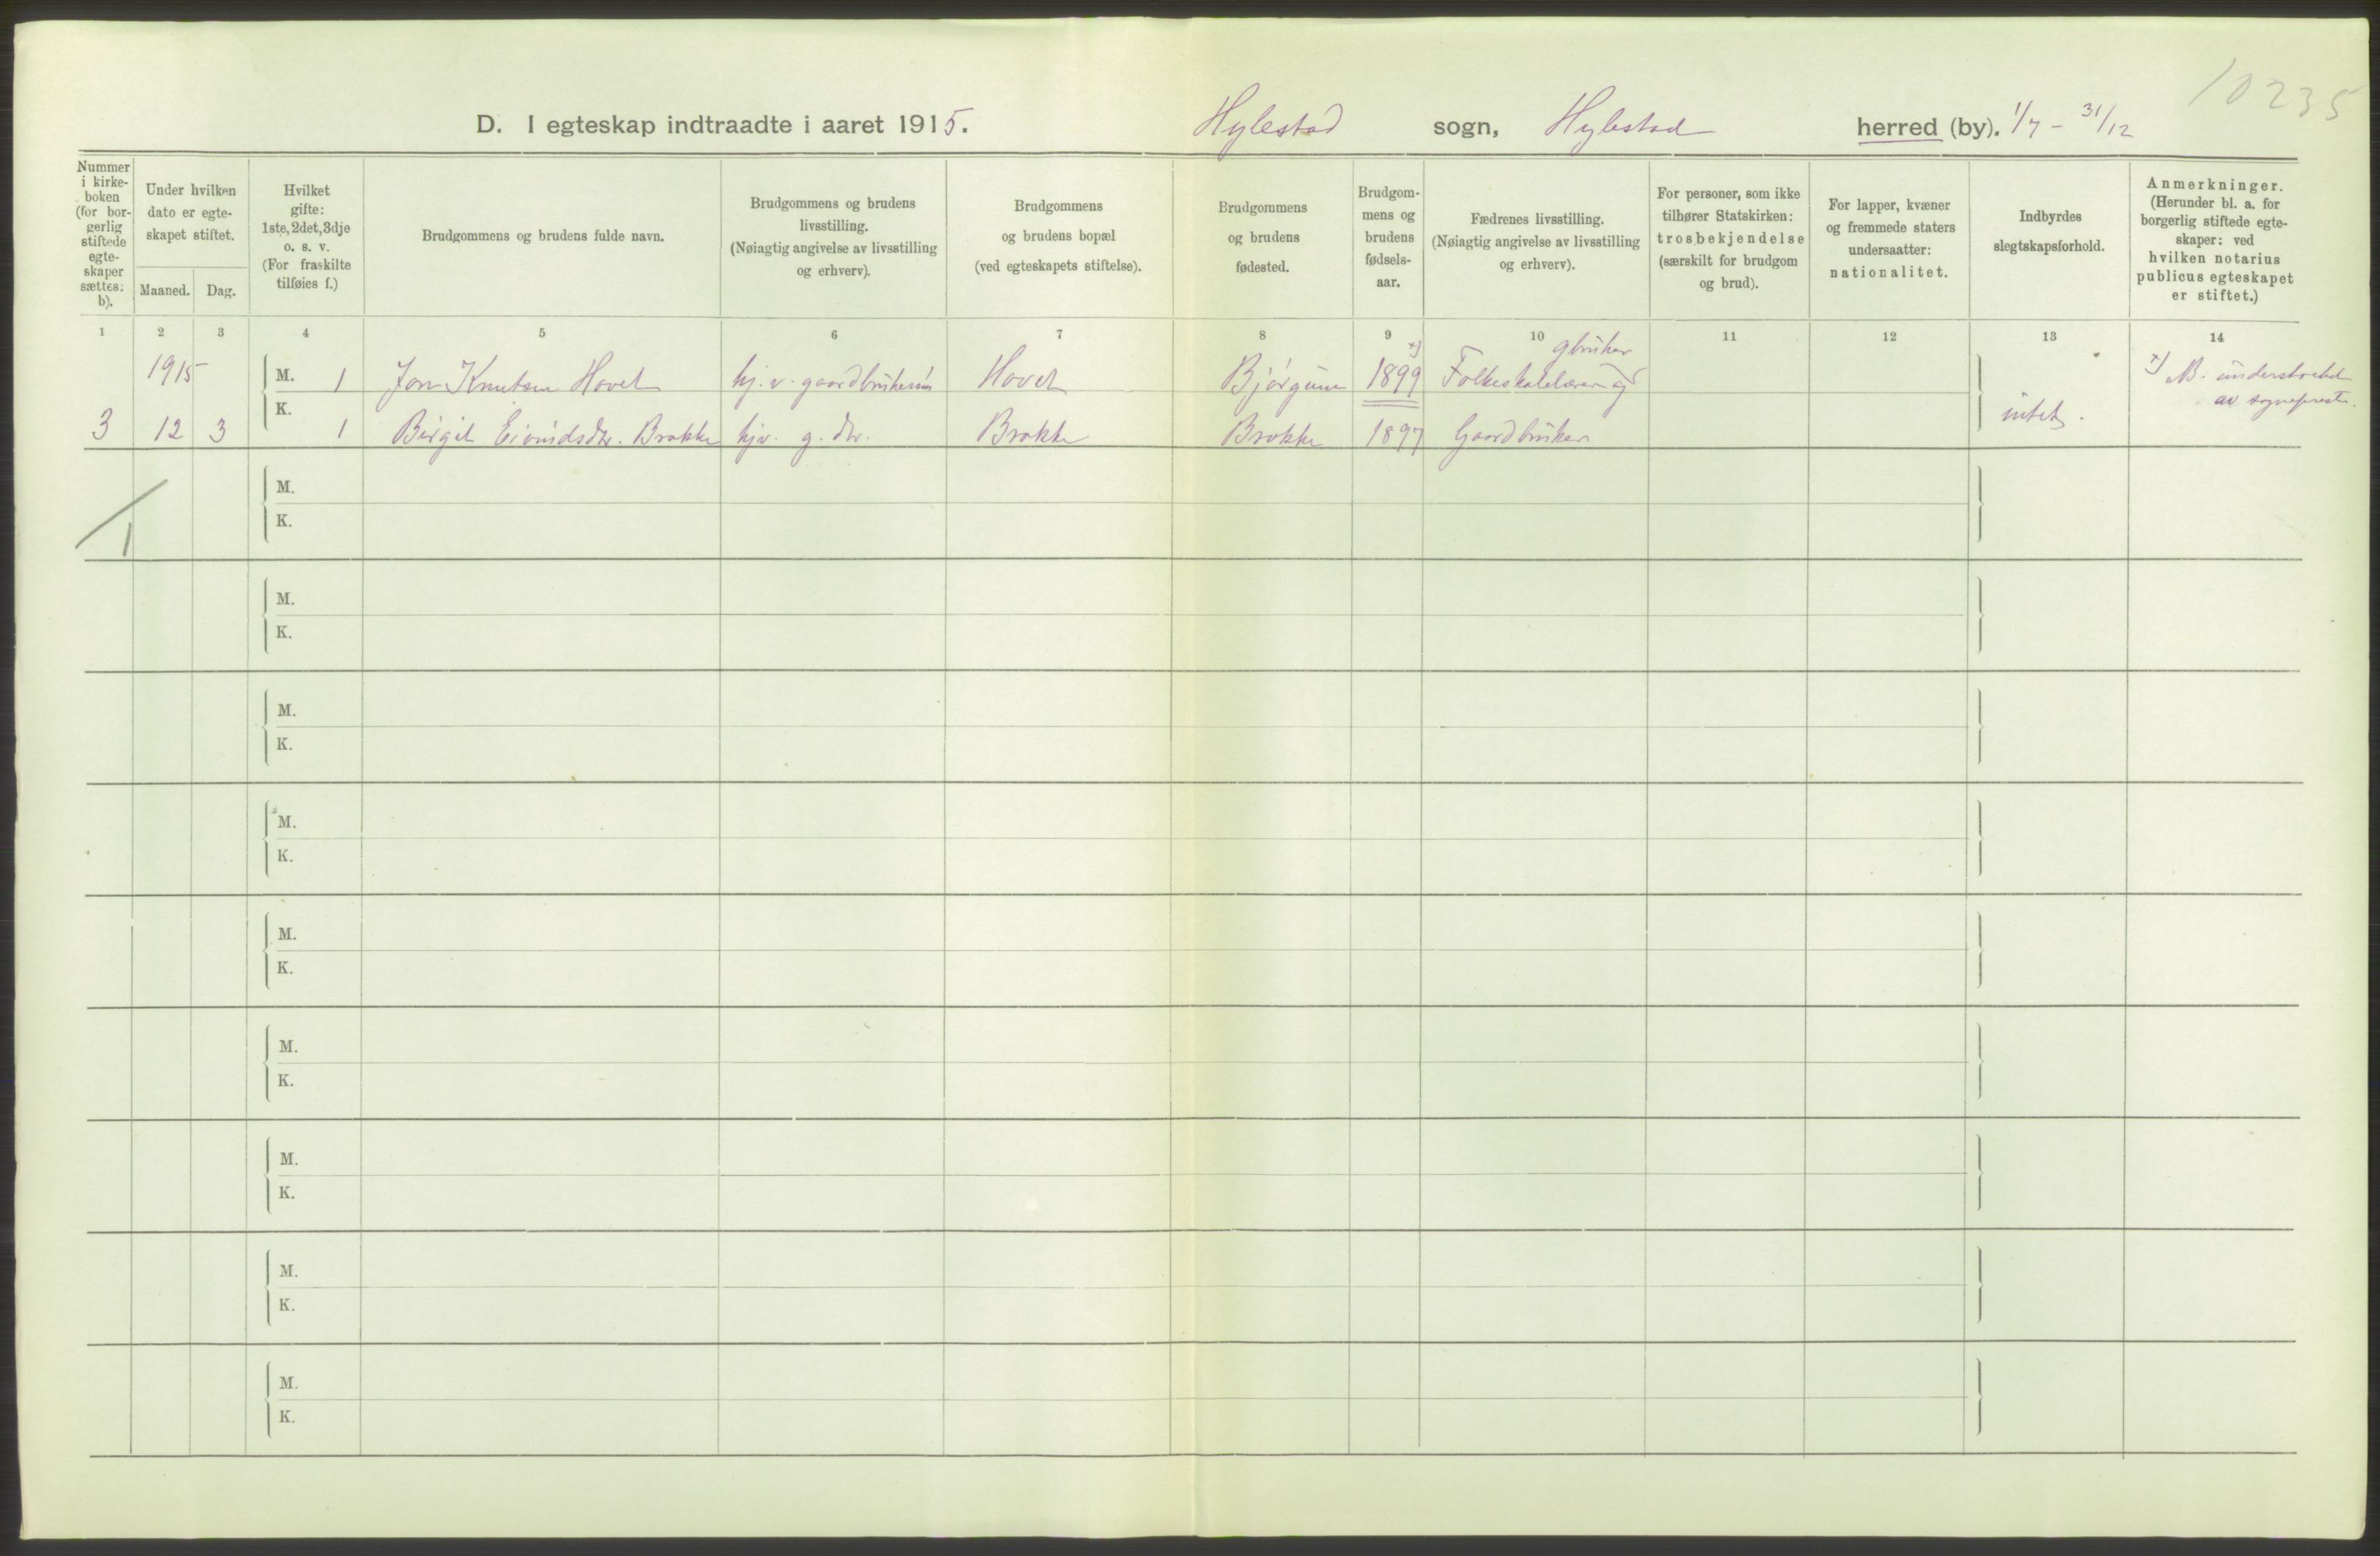 10235
D. I egteskap indtraadte i aaret 1915. Hylestad sogn, Hylestad herred (by). 1/7 - 31/12
Nummer
i kirke-
boken
(for bor-
gerlig
stiftede
egte-
skaper
sættes:
b).
Under hvilken
dato er egte-
skapet stiftet.
Maaned. Dag.
Hvilket
gifte:
1ste, 2det, 3dje
o. s. v.
(For fraskilte
tilføies f.)
Brudgommens og brudens fulde navn.
Brudgommens og brudens
livsstilling.
(Nøiagtig angivelse av livsstilling
og erhverv).
Brudgommens
og brudens bopæl
(ved egteskapets stiftelse).
Brudgommens
og brudens
fødested.
Brudgom-
mens og
brudens
fødsels-
aar.
Fædrenes livsstilling.
(Nøiagtig angivelse av livsstilling
og erhverv).
For personer, som ikke
tilhører Statskirken:
trosbekjendelse
(særskilt for brudgom
og brud).
For lapper, kvæner
og fremmede staters
undersaatter:
nationalitet.
Indbyrdes
slegtskapsforhold.
Anmerkninger.
(Herunder bl. a. for
borgerlig stiftede egte-
skaper: ved
hvilken notarius
publicus egteskapet
er stiftet.)
1 2 3 4 5 6 7 8 9 10 11 12 13 14
gbruker
1915 M. 1 Jon Knutsen Hovet hj. v. Hovet Bjørgum 1899 x) Folkeskolelærer og x) NB. understreket
av sogneprest.
K.
3 12 3 1 Birgit Eivindsdtr. Brokke hjv. g. dtr. Brokke Brokke 1897 Gaardbruker intet.
M.
K.
1
M.
K.
M.
K.
M.
K.
M.
K.
M.
K.
M.
K.
M.
K.
M.
K.